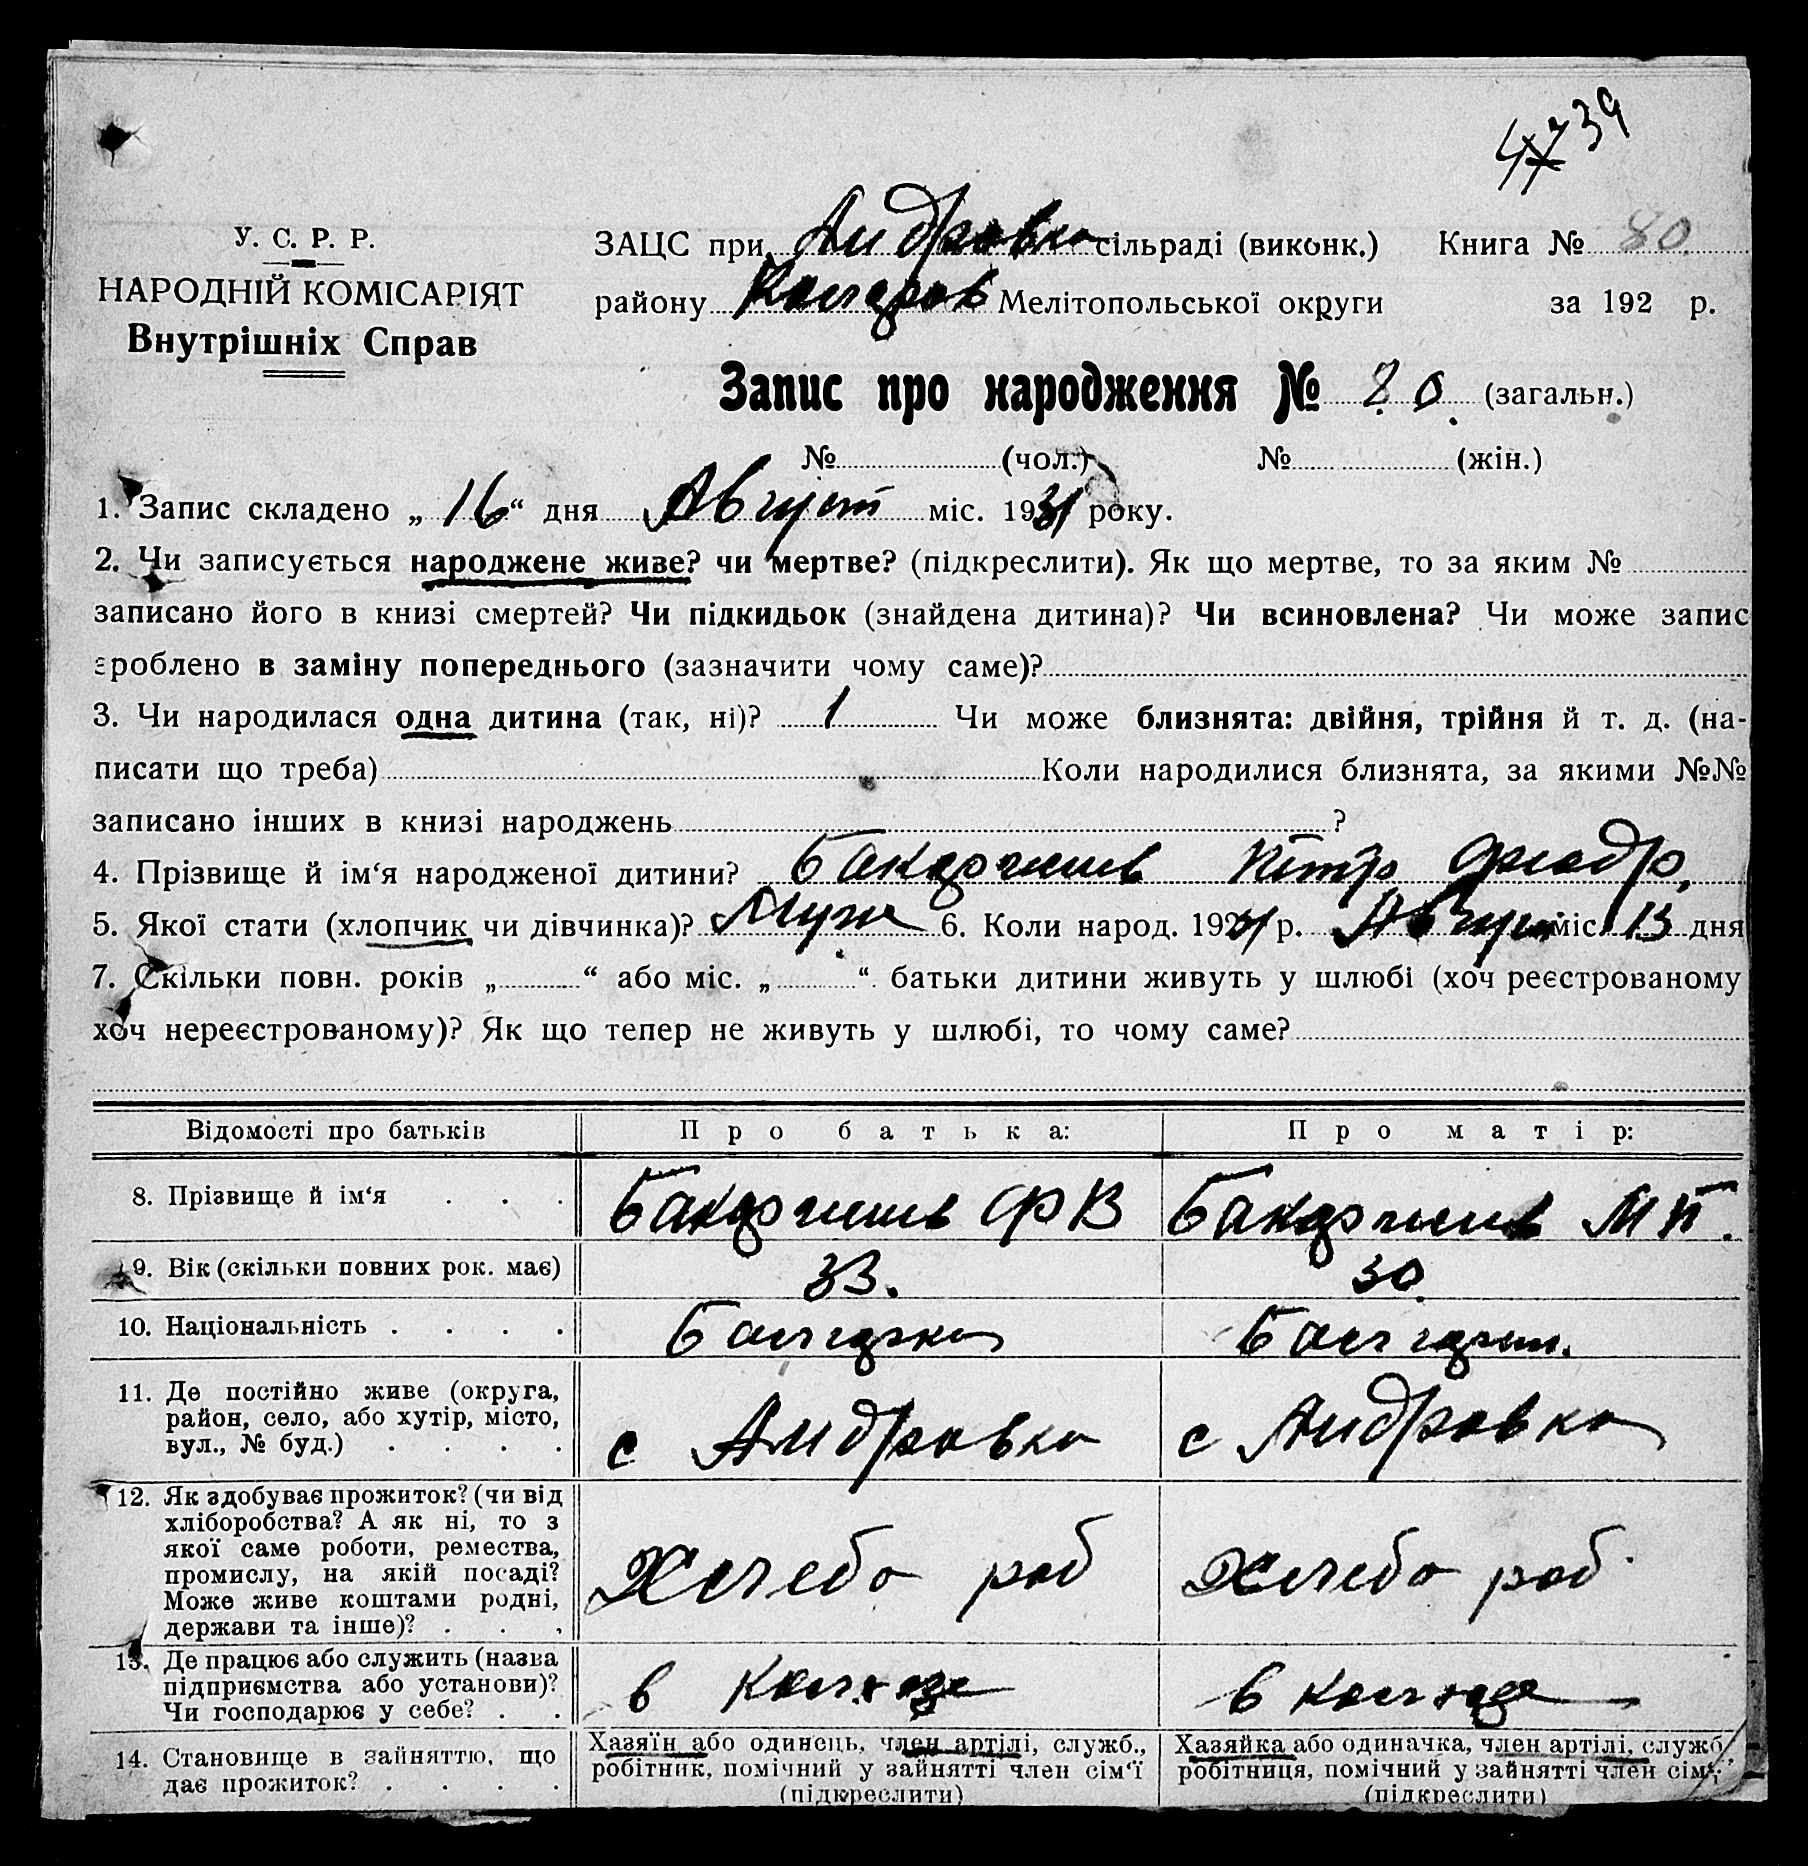 39
У. С. Р. Р.
НАРОДНІЙ КОМІСАРІЯТ
Внутрішніх Справ
ЗАЦС при Андровка сільраді (виконк.) Книга № 80
району Коларов Мелітопольської округи за 192 р.
Запис про народження № 80. (загальн.)
№ (чол.) № (жін.)
1. Запис складено „ 16 “ дня Август міс. 1931 року.
2. Чи записується народжене живе? чи мертве? (підкреслити). Як що мертве, то за яким №
записано його в книзі смертей? Чи підкидьок (знайдена дитина)? Чи всиновлена? Чи може запис
зроблено в заміну попереднього (зазначити чому саме)?
3. Чи народилася одна дитина (так, ні)? 1 Чи може близнята: двійня, трійня й т. д. (на-
писати що треба) Коли народилися близнята, за якими №№
записано інших в книзі народжень ?
4. Прізвище й ім‘я народженої дитини?
5. Якої стати (хлопчик чи дівчинка)? Муж 6. Коли народ. 1931 р. Август міс. 13 дня
7. Скільки повн. років „ “ або міс. „ “ батьки дитини живуть у шлюбі (хоч реєстрованому
хоч нереєстрованому)? Як що тепер не живуть у шлюбі, то чому саме?
Відомості про батьків Про батька: Про матір:
8. Прізвище й ім‘я Ф В М П.
9. Вік (скільки повних рок. має) 33. 30.
10. Національність
11. Де постійно живе (округа,
район, село, або хутір, місто,
вул., № буд.) с Андровка с Андровка
12. Як здобуває прожиток? (чи від
хліборобства? А як ні, то з
якої саме роботи, ремества,
промислу, на якій посаді?
Може живе коштами родні,
держави та інше)? Хлебо роб Хлебо роб
13. Де працює або служить (назва
підприємства або установи)?
Чи господарює у себе? в в
14. Становище в зайняттю, що
дає прожиток?
Хазяїн або одинець, член артілі, служб.,
робітник, помічний у зайнятті член сім‘ї
(підкреслити)
Хазяйка або одиначка, член артілі, служб.,
робітниця, помічний у зайнятті член сім‘ї
(підкреслити)